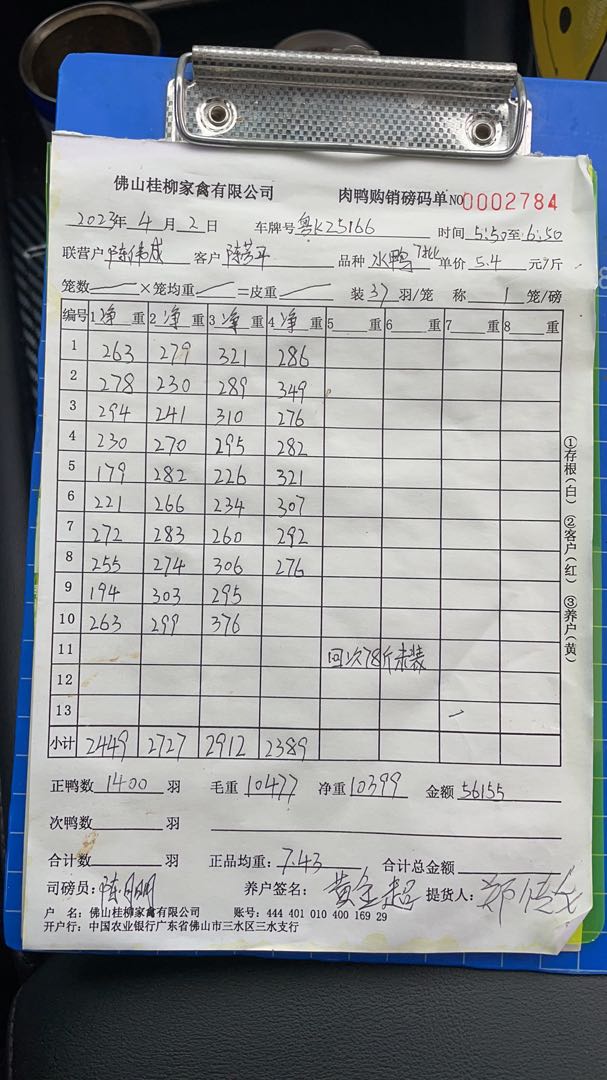 佛山桂柳家禽有限公司 肉鸭购销磅码单 NO 0002784
2023年 4月 2日 车牌号 粤K25166 时间 5:50至6:50
联营户 陈伟成 客户 陈芳平 品种 水鸭 单价 5.4 元/斤
笼数 ×笼均重 =皮重 装 37 羽/笼 称 1 笼/磅
编号 1 净 重 2 净 重 3 净 重 4 净 重 5 重 6 重 7 重 8 重
1 263 279 321 286
2 278 230 289 349
3 294 241 310 276
4 230 270 295 282
5 179 282 226 321
6 221 266 234 307
7 272 283 260 292
8 255 274 306 276
9 194 303 295
10 263 299 376
11 回次78斤未装
12
13
小计 2449 2727 2912 2389
①存根(白) ②客户(红) ③养户(黄)
正鸭数 1400 羽 毛重 10477 净重 10399 金额 56155
次鸭数 羽
合计数 羽 正品均重: 7.43 合计总金额
司磅员: 养户签名: 黄金超 提货人:
户 名: 佛山桂柳家禽有限公司 账号: 444 401 010 400 169 29
开户行: 中国农业银行广东省佛山市三水区三水支行